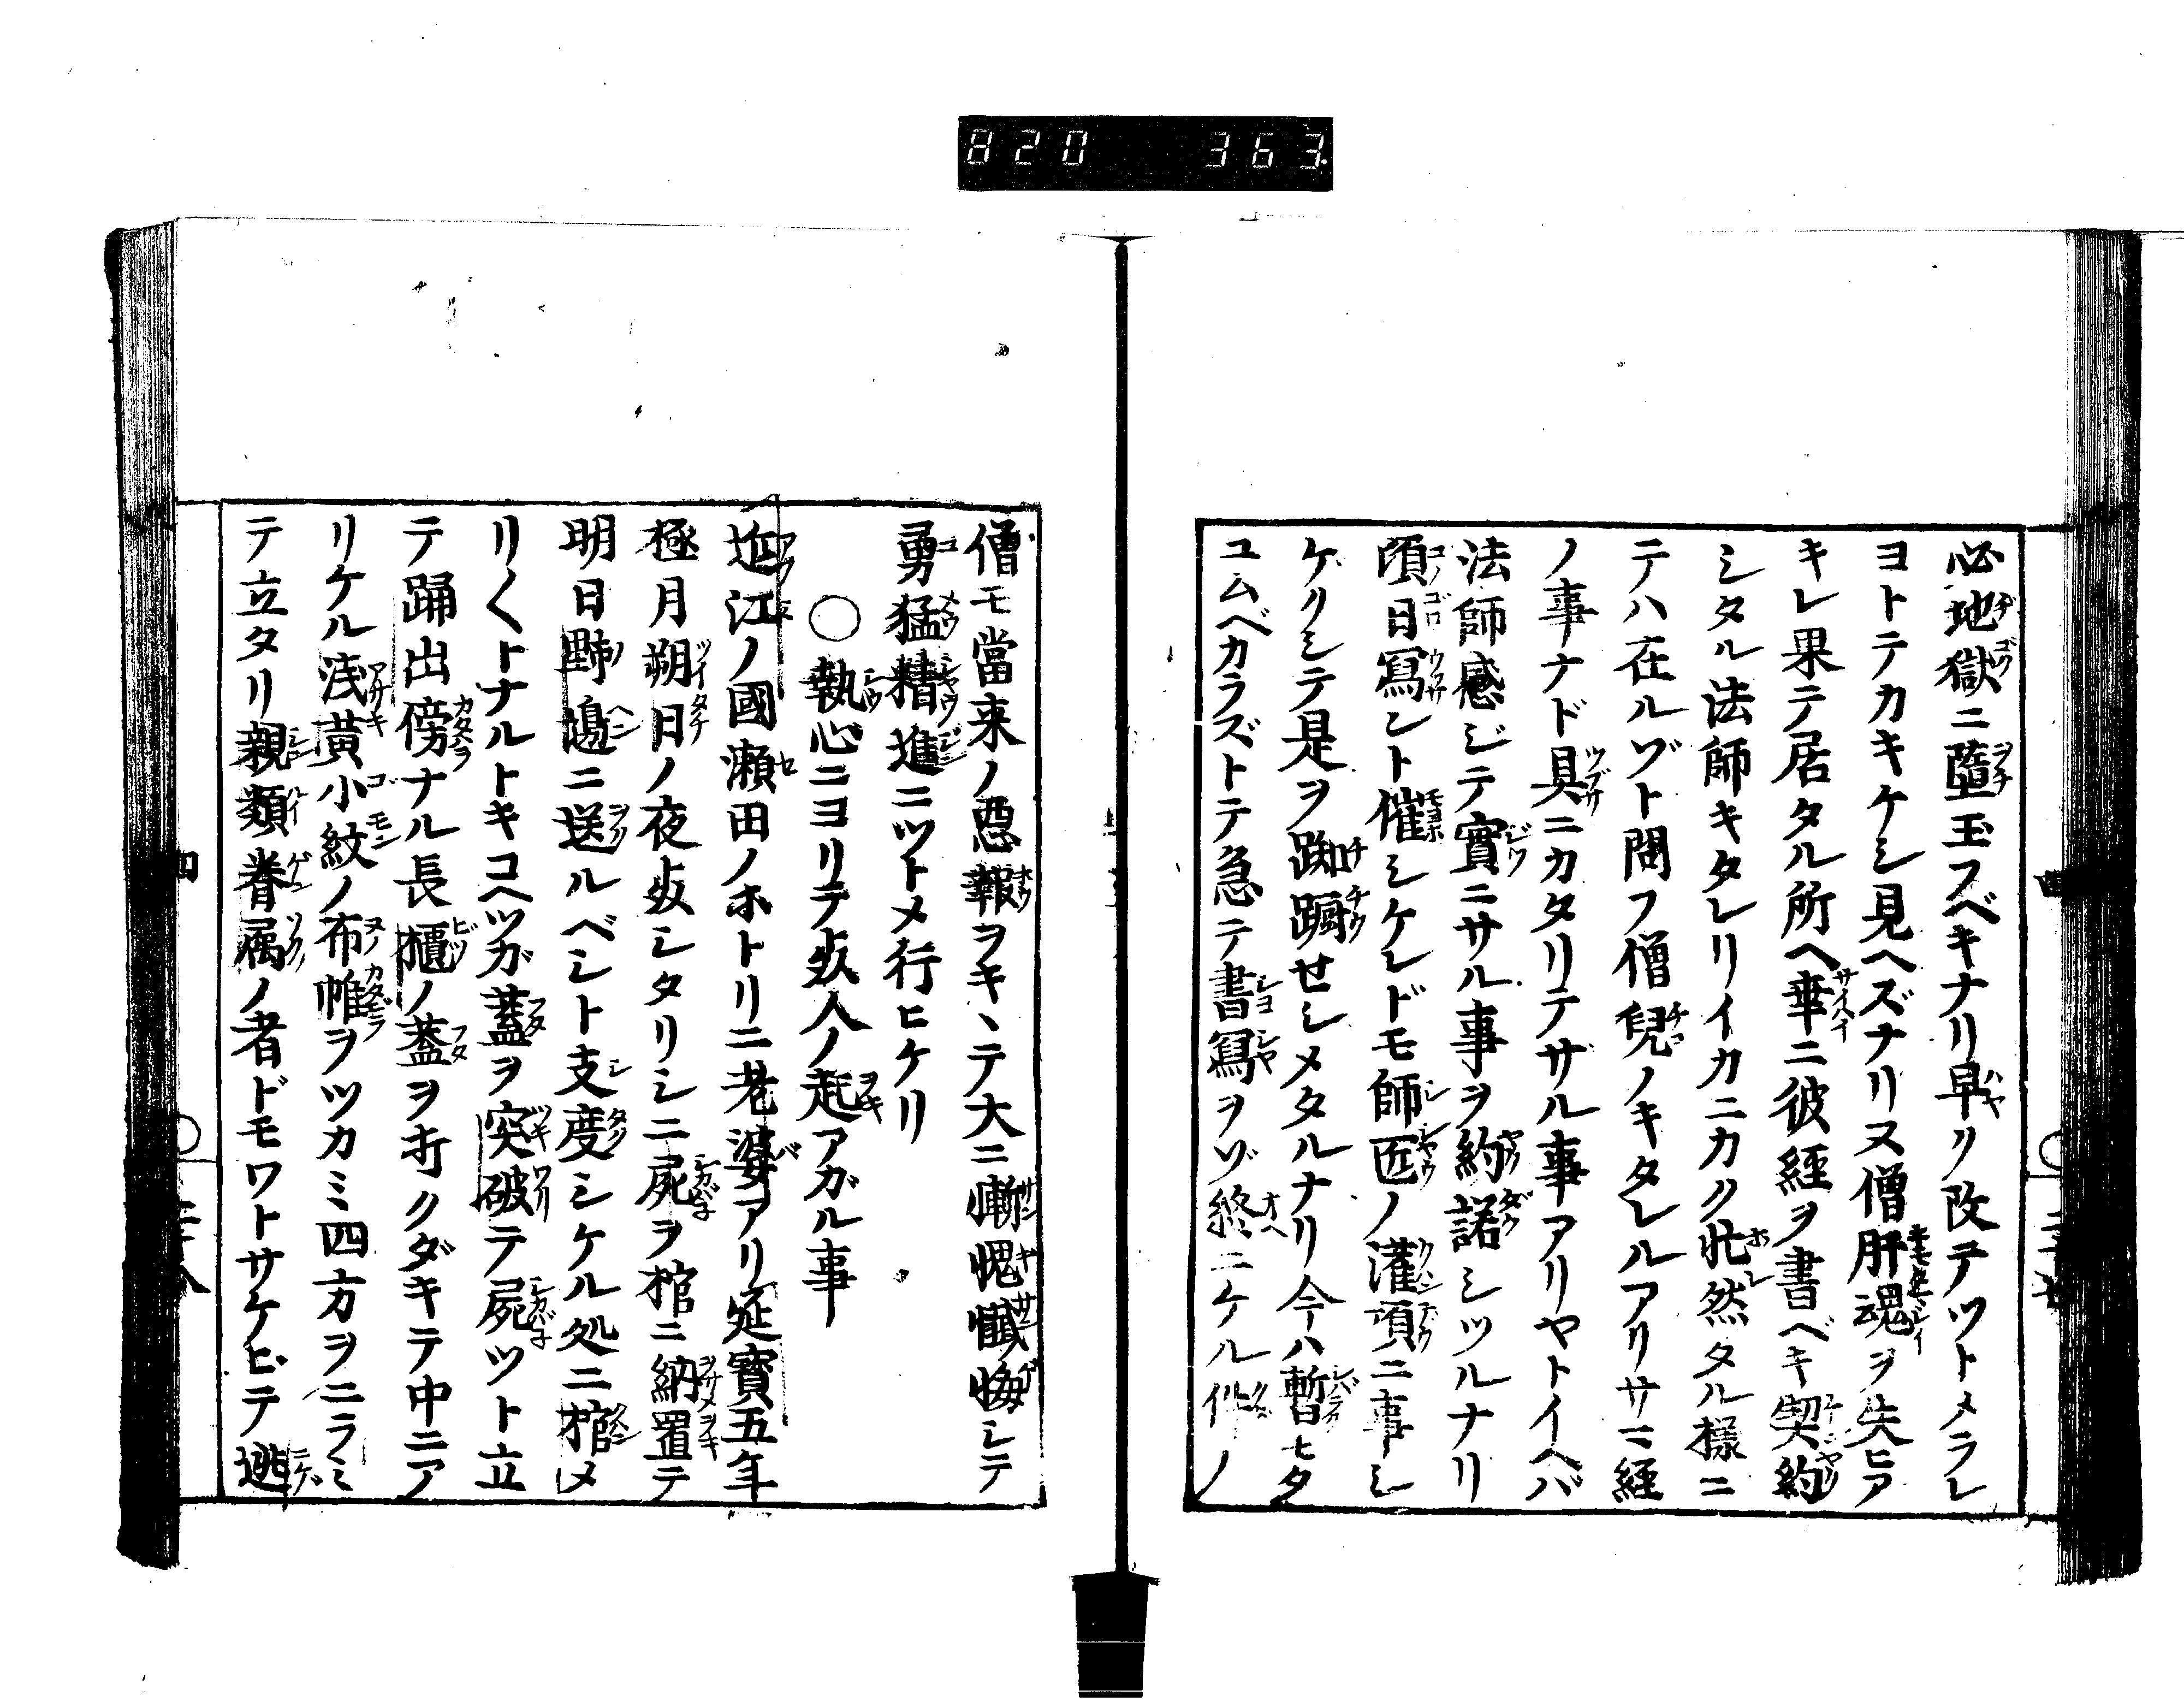 820 363
必地獄ニ墮玉フベキナリ早ク改テツトメラレ
ヨトテカキケシ見ヘズナリヌ僧肝魂ヲ失ヒア
キレ果テ居タル所ヘ幸ニ彼経ヲ書ベキ契約
シタル法師キタレリイカニカク恍然タル様ニ
テハ在ルゾト問フ僧兒ノキタレルアリサマ経
ノ事ナド具ニカタリテサル事アリヤトイヘバ
法師感ジテ實ニサル事ヲ約諾シツルナリ
頃日寫シト催シケレドモ師匠ノ灌頂ニ事シ
ゲクシテ是ヲ踟蹰セシメタルナリ今ハ暫モタ
ユムベカラズトテ急テ書寫ヲゾ終ニケル件ノ
僧モ當来ノ悪報ヲキヽテ大ニ慚愧懺悔シテ
勇猛精進ニツトメ行ヒケリ
○執心ニヨリテ死人ノ起アガル事
近江ノ國瀬田ノホトリニ老婆アリ延寳五年
極月朔日ノ夜死シタリシニ屍ヲ棺ニ納置テ
明日野邊ニ送ルベシト支度シケル処ニ棺メ
リ〱トナルトキコヘツガ蓋ヲ突破テ屍ツト立
テ踊出傍ナル長櫃ノ蓋ヲ打クダキテ中ニア
リケル浅黄小紋ノ布帷ヲツカミ四方ヲニラミ
テ立タリ親類眷属ノ者ドモワトサケビテ逃